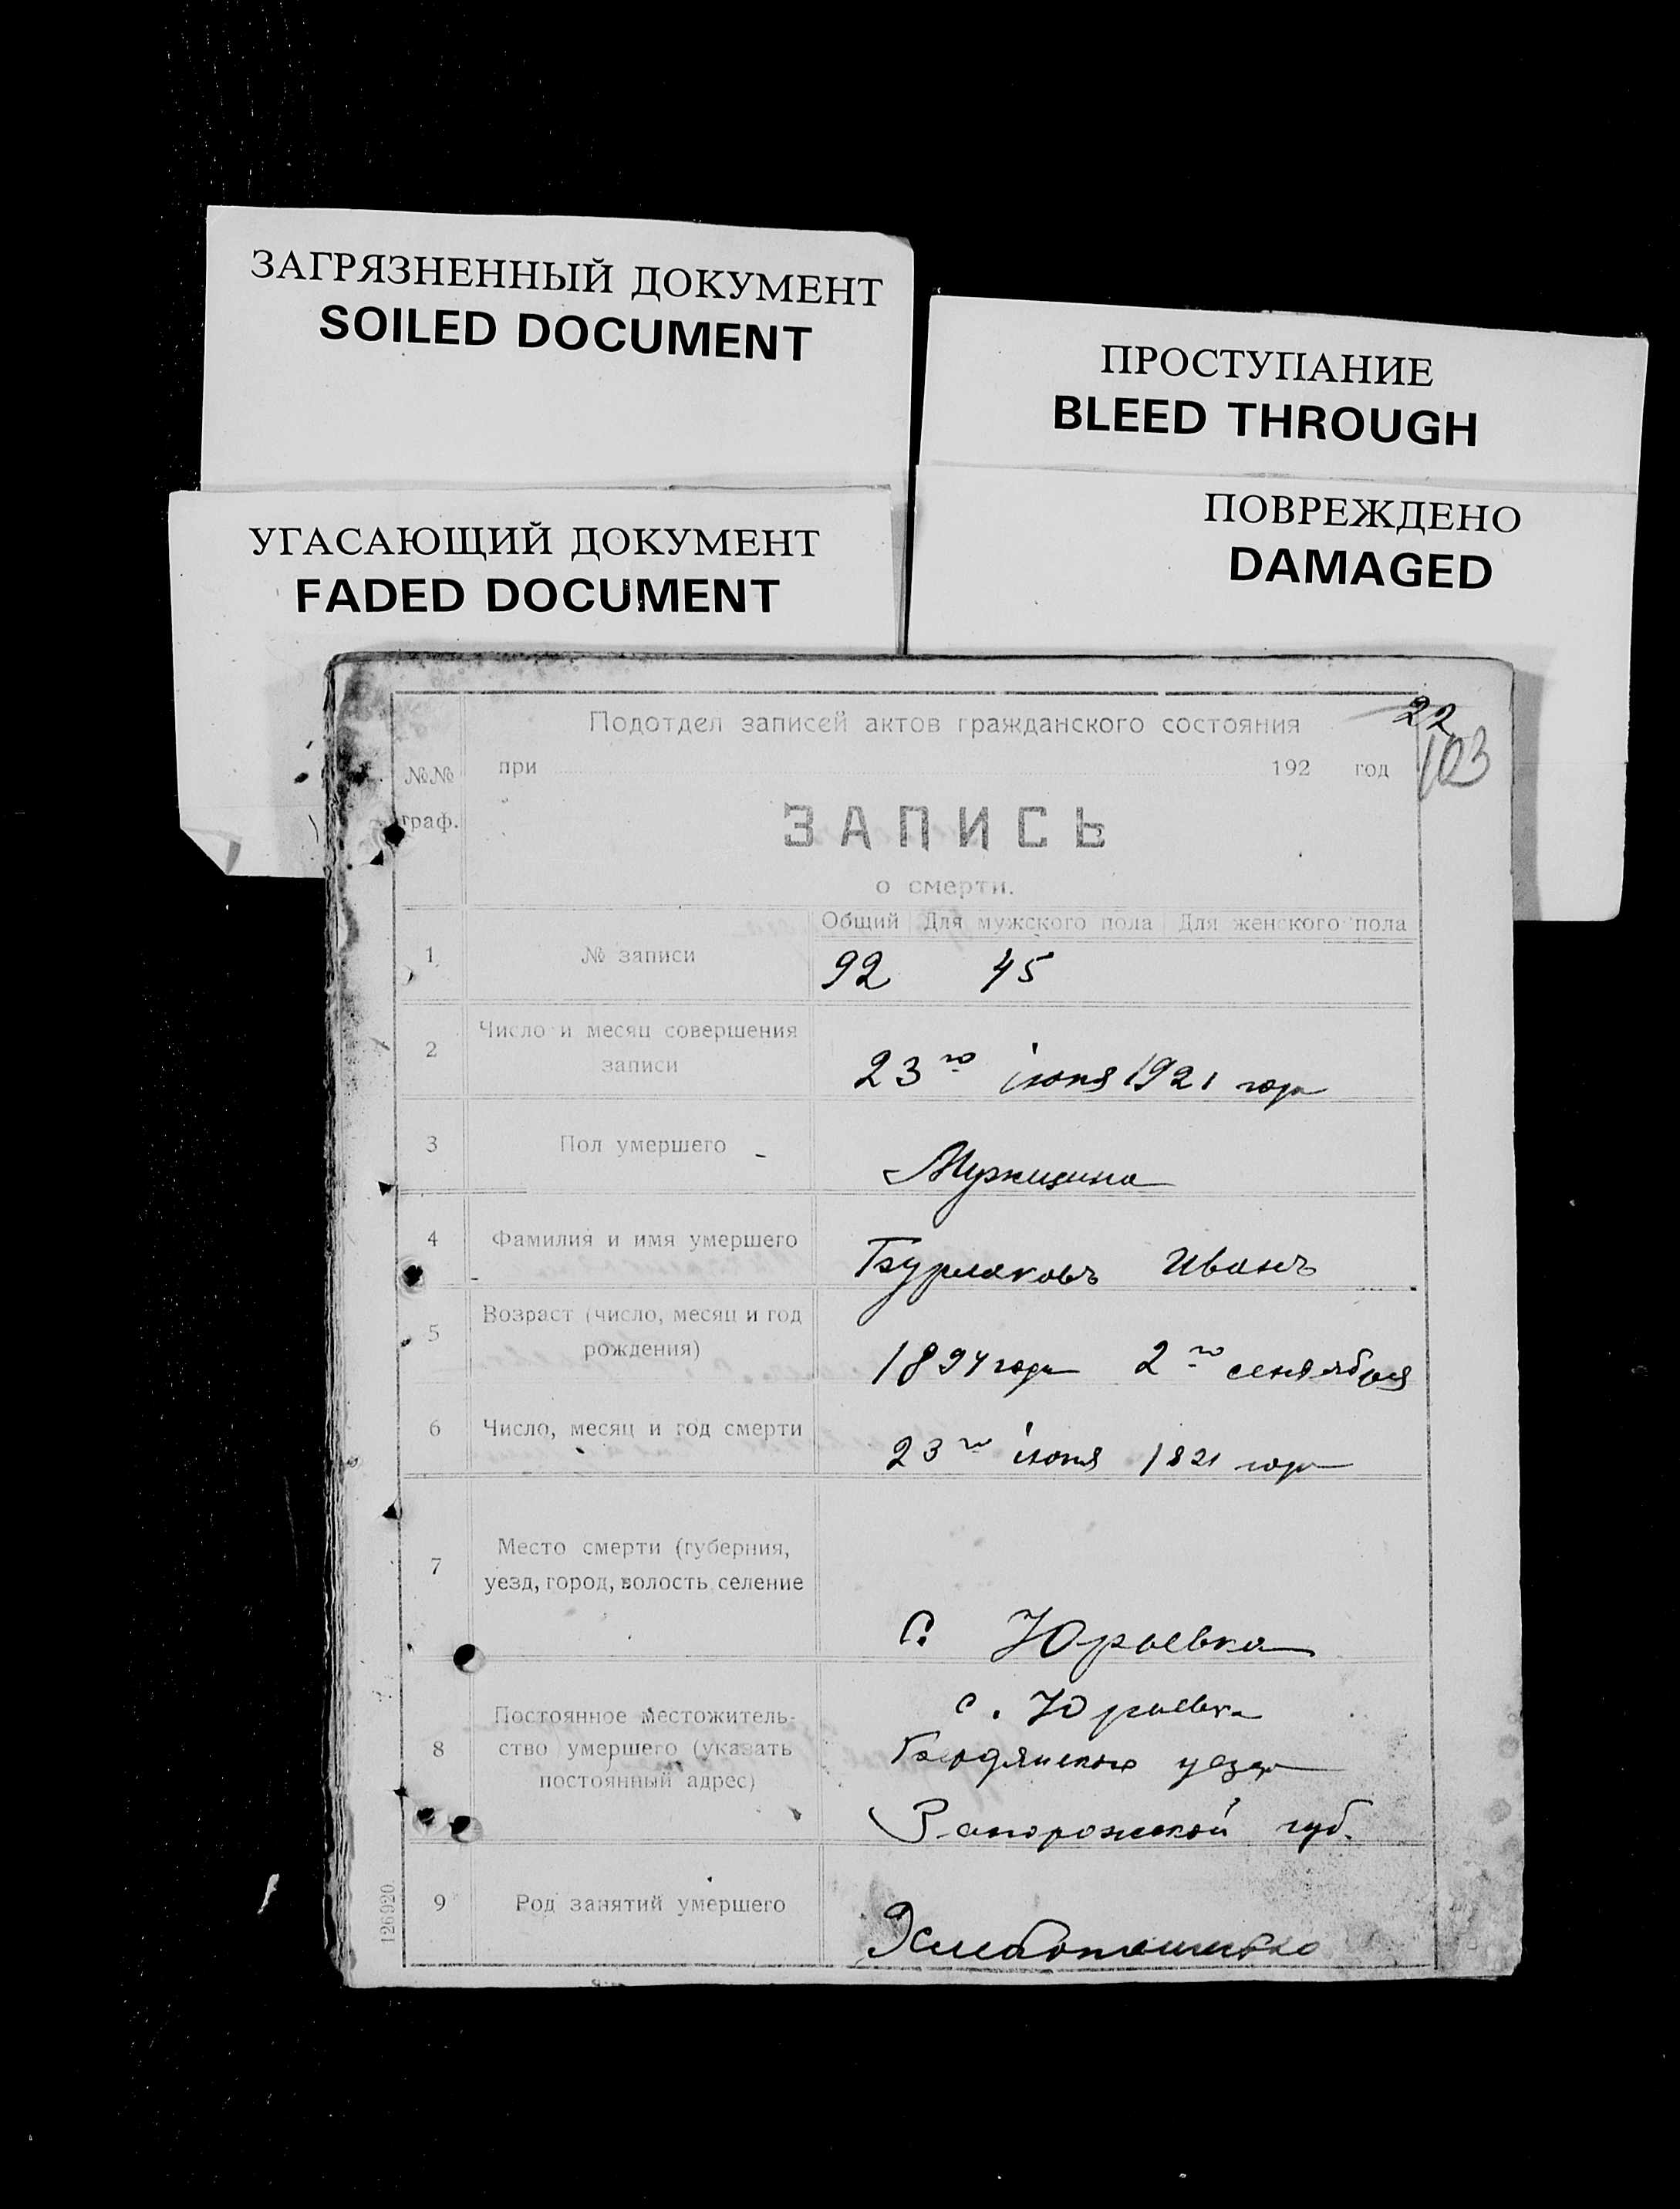 ЗАГРЯЗНЕННЫЙ ДОКУМЕНТ
SOILED DOCUMENT
ПРОСТУПАНИЕ
BLEED THROUGH
УГАСАЮЩИЙ ДОКУМЕНТ
FADED DOCUMENT
ПОВРЕЖДЕНО
DAMAGED
22
103
Подотдел записей актов гражданского состояния
№№ граф.
при 192 год
ЗАПИСЬ
о смерти.
Общий Для мужского пола Для женского пола
1 № записи 92 45
2 Число и месяц совершения
записи
23го іюня 1921 года
3 Пол умершего Мужщина
4 Фамилия и имя умершего Бурлаковъ Иванъ
5 Возраст (число, месяц и год
рождения)
1894 года 2го сентября
6 Число, месяц и год смерти 23го іюня 1821 года
7 Место смерти (губерния,
уезд, город, волость, селение
С. Юрьевка
8 Постоянное местожитель-
ство умершего (указать
постоянный адрес)
с. Юрьевка
Бердянского уезда
Запорожской губ.
9 Род занятий умершего Хлебопашество
126920